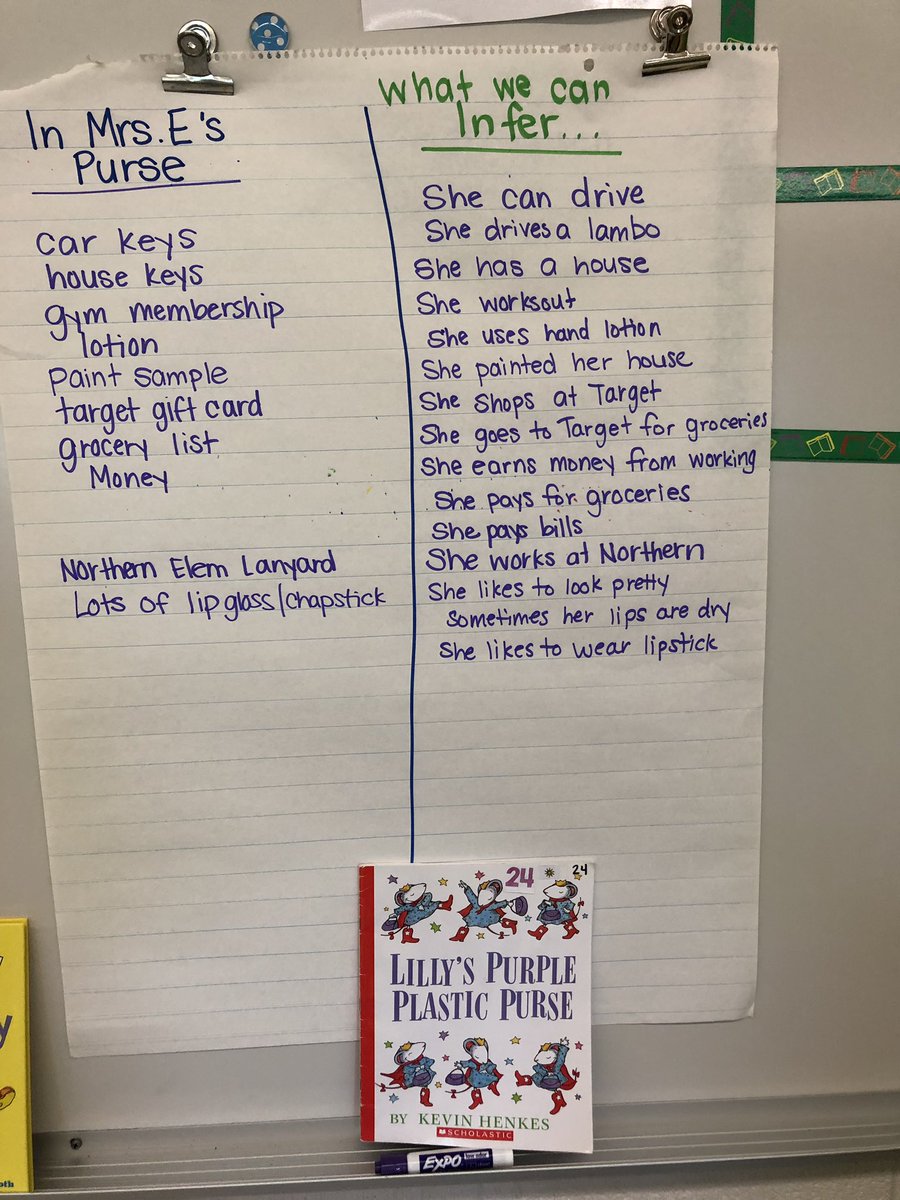 In Mrs. E's
Purse
car keys
house keys
gym membership
lotion
paint sample
target gift card
grocery list
Money
Northern Elem Lanyard
Lots of lipgloss/chapstick
What we can
Infer...
She can drive
She drives a lambo
She has a house
She worksout
She uses hand lotion
She painted her house
She shops at Target
She goes to Target for groceries
She earns money from working
She pays for groceries
She pays bills
She works at Northern
She likes to look pretty
Sometimes her lips are dry
She likes to wear lipstick
24
24
LILLY'S PURPLE
PLASTIC PURSE
BY KEVIN HENKES
SCHOLASTIC
EXPO
y
oth